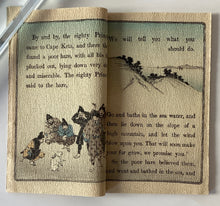 By and by, the eighty Princes
came to Cape Keta, and there they
found a poor hare, with all his
plucked out, lying down very
and miserable. The eighty Princes
said to the hare,
We will tell you what you
should do.
Go and bathe in the sea water, and
then lie down on the slope of a
high mountain, and let the wind
blow upon you. That will soon make
your fur grow, we promise you."
So the poor hare believed them,
and went and bathed in the sea, and